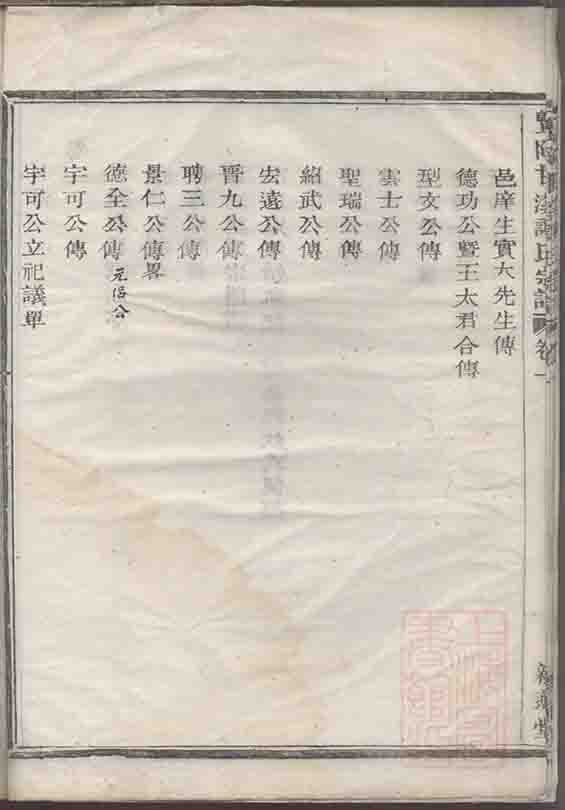 暨陽甘溪謝氏宗譜 卷一
邑庠生實夫先生傳
德功公暨王太君合傳
型文公傳
雲士公傳
聖瑞公傳
紹武公傳
宏遠公傳
晋九公傳
聘三公傳
景仁公傳畧
德全公傳 元侣公
宇可公傳
宇可公立祀議單